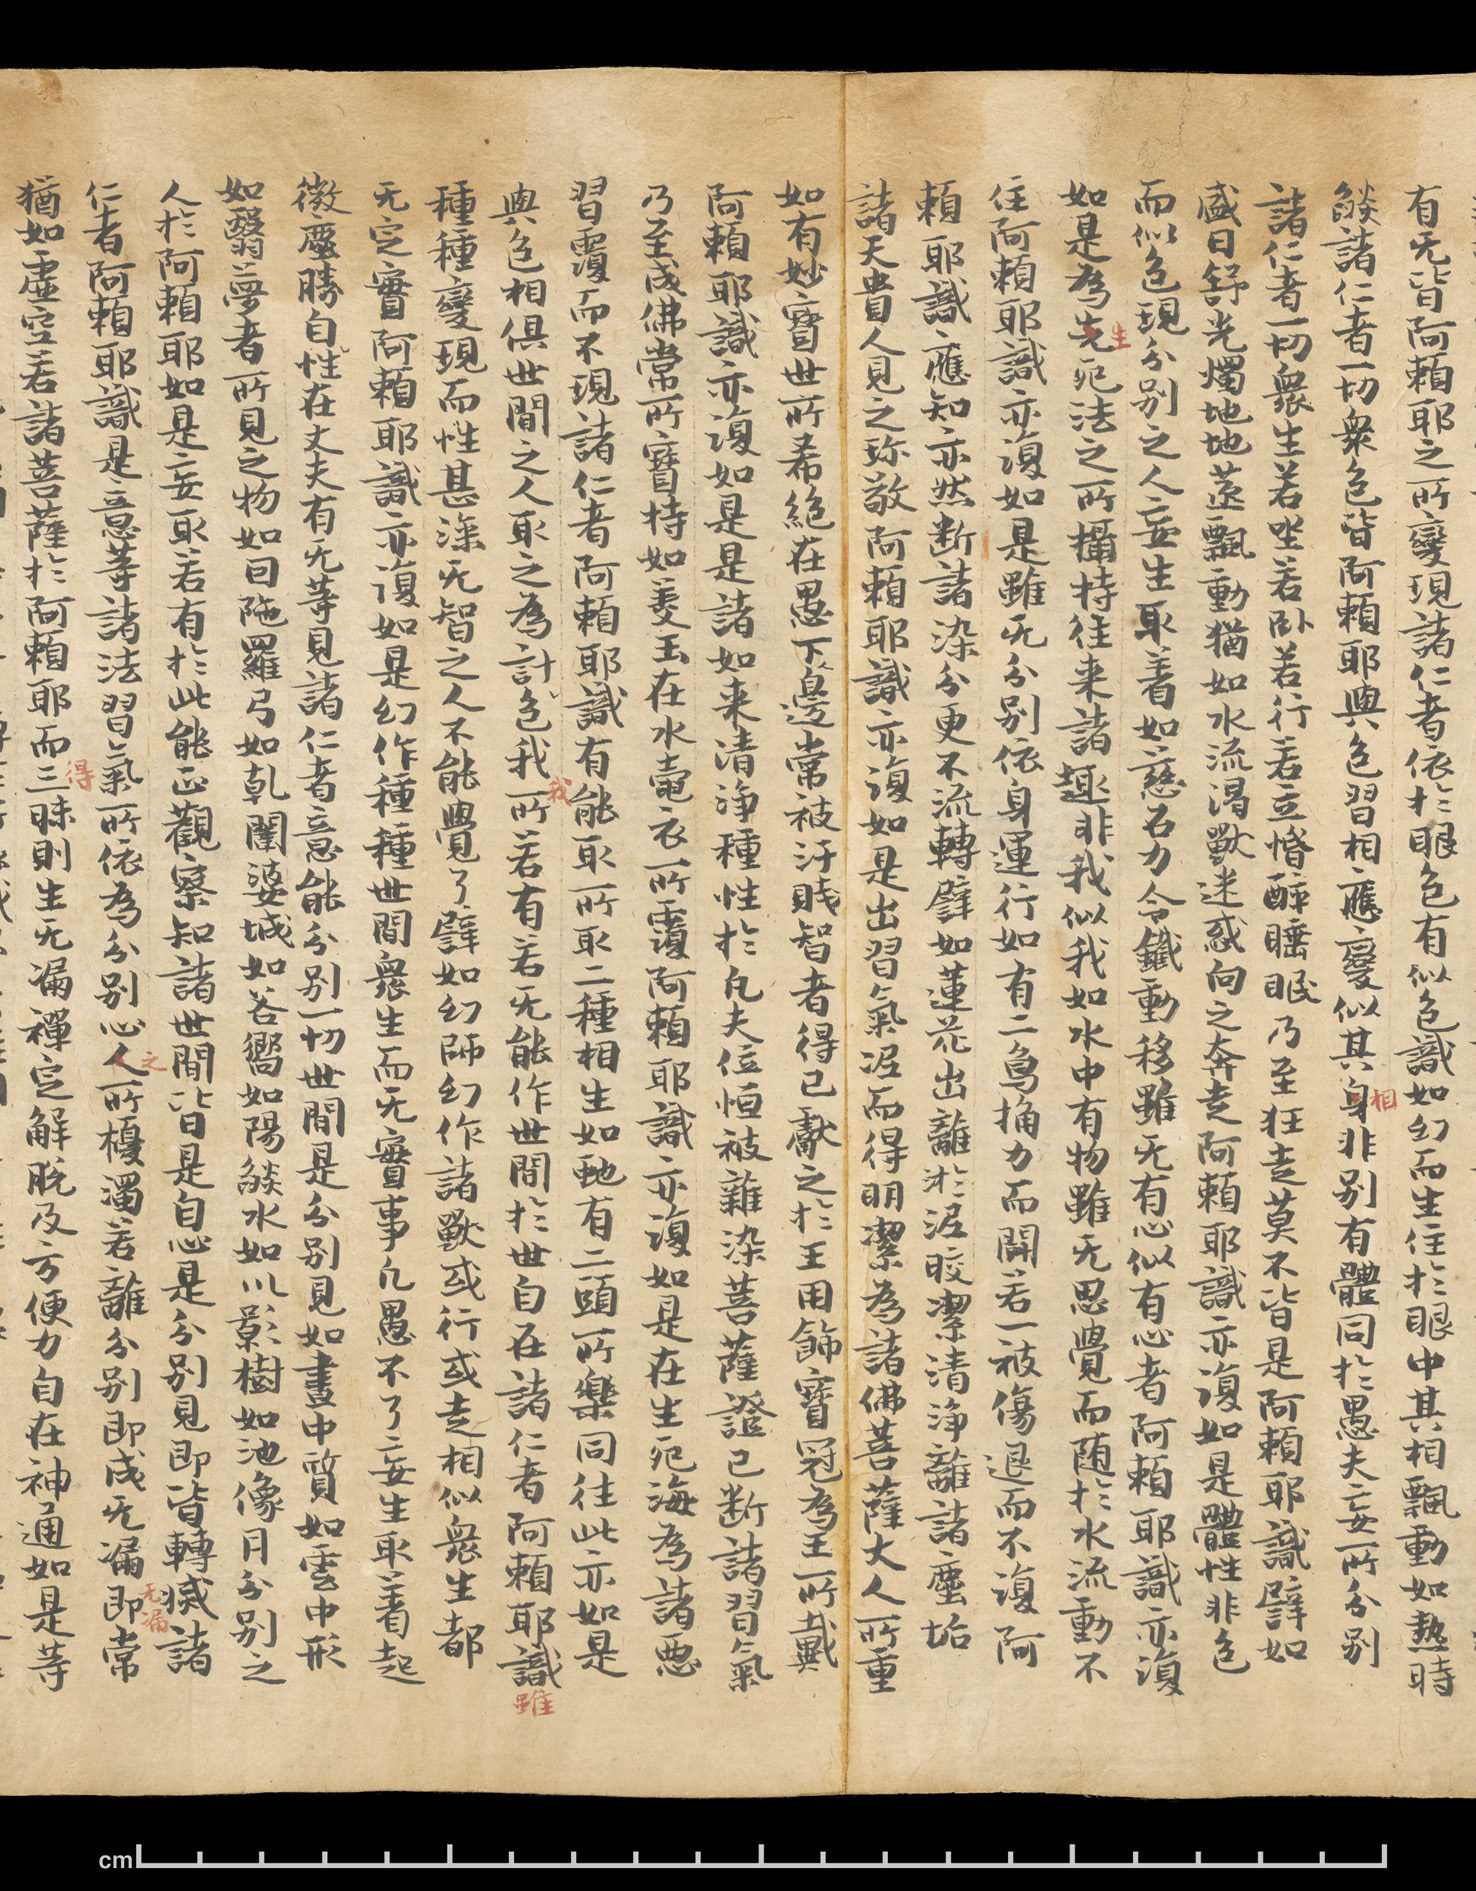 有无皆阿賴耶之所變現諸仁者依於眼色有似色識如幻而生住於眼中其相飄動如熱時
焰諸仁者一切眾色皆阿賴耶與色習相應變似其身相非別有體同於愚夫妄所分別
諸仁者一切眾生若坐若臥若行若立惛醉睡眠乃至狂走莫不皆是阿賴耶識譬如
盛日舒光燭地地蒸飄動猶如水流渴獸迷惑向之奔走阿賴耶識亦復如是體性非色
而似色現分別之人妄生取著如慈石力令鐵動移雖无有心似有心者阿賴耶識亦復
如是為先生死法之所攝持往来諸趣非我似我如水中有物雖无思覺而隨於水流動不
住阿賴耶識亦復如是雖无分別依身運行如有二鳥捔力而鬪若一被傷退而不復阿
賴耶識應知亦然断諸染分更不流轉譬如蓮花出離於泥皎潔清淨離諸塵垢
諸天貴人見之珎敬阿賴耶識亦復如是出習氣泥而得明潔為諸佛菩薩大人所重
如有妙寶世所希絕在愚下邊常被汙賤智者得已獻之於王用飾寶冠為王所戴
阿賴耶識亦復如是是諸如来清淨種性於凡夫位恒被雜染菩薩證已断諸習氣
乃至成佛常所寶持如美玉在水壺衣所覆阿賴耶識亦復如是在生死海為諸惡
習覆而不現諸仁者阿賴耶識有能取所取二種相生如虵有二頭所樂同往此亦如是
與色相俱世間之人取之為計色我我所若有若无能作世間於世自在諸仁者阿賴耶識雖
種種變現而性甚深无智之人不能覺了譬如幻師幻作諸獸或行或走相似眾生都
无定實阿賴耶識亦復如是幻作種種世間眾生而无實事凡愚不了妄生取著起
微塵勝自性在丈夫有无等見諸仁者意能分別一切世間是分別見如畫中質如雲中形
如翳夢者所見之物如因陁羅弓如乹闥婆城如谷嚮如陽焰水如川影樹如池像月分別之
人於阿賴耶如是妄取若有於此能正觀察知諸世間皆是自心是分別見即皆轉滅諸
仁者阿賴耶識是意等諸法習氣所依為分別心人之所擾濁若離分別即成无漏无漏即常
猶如虛空若諸菩薩於阿賴耶而得三昧則生无漏禪定解脫及方便力自在神通如是等